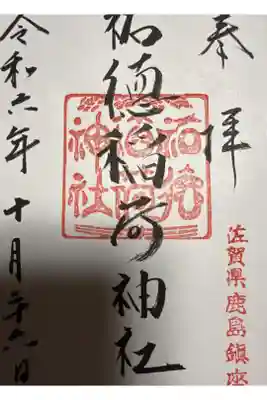 奉拝
佐賀県鹿島鎮座
祐徳稲荷神社
石壁稲荷神社
令和六年十月二十六日